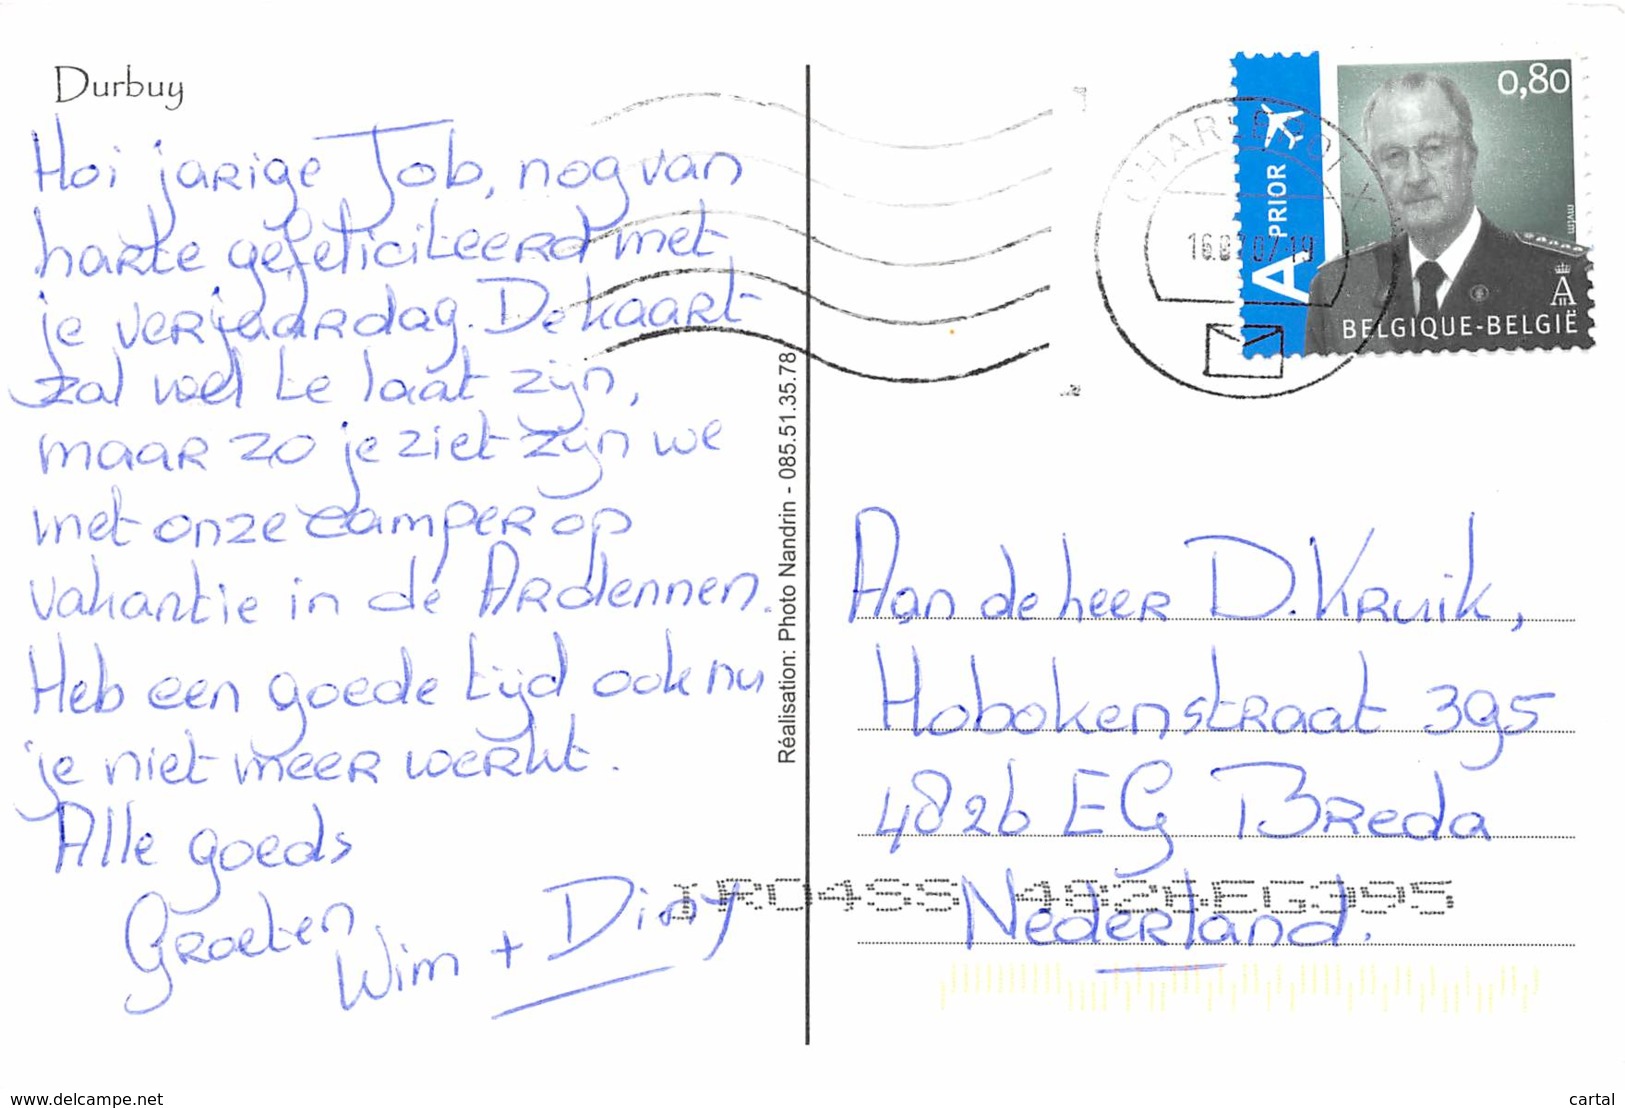 Durbuy
Hoi jarige Job, nog van
harte gefeliciteerd met
je verjaardag. De kaart
zal wel te laat zijn,
maar zo je ziet zijn we
met onze camper op
vakantie in de Ardennen.
Heb een goede tijd ook nu
je niet meer werkt.
Alle goeds
Groeten
Wim + Diny
Réalisation: Photo Nandrin - 085.51.35.78
0,80
A PRIOR
mvtm
BELGIQUE-BELGIË
CHARLEROI X
07-19
Aan de heer D. Kruik,
Hobokenstraat 395
4826 EG Breda
Nederland.
4826EG395
www.delcampe.net
cartal